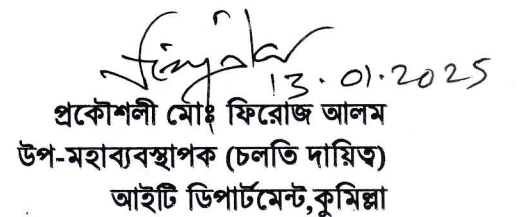 13.01.2025
প্রকৌশলী মোঃ ফিরোজ আলম
উপ-মহাব্যবস্থাপক (চলতি দায়িত্ব)
আইটি ডিপার্টমেন্ট,কুমিল্লা